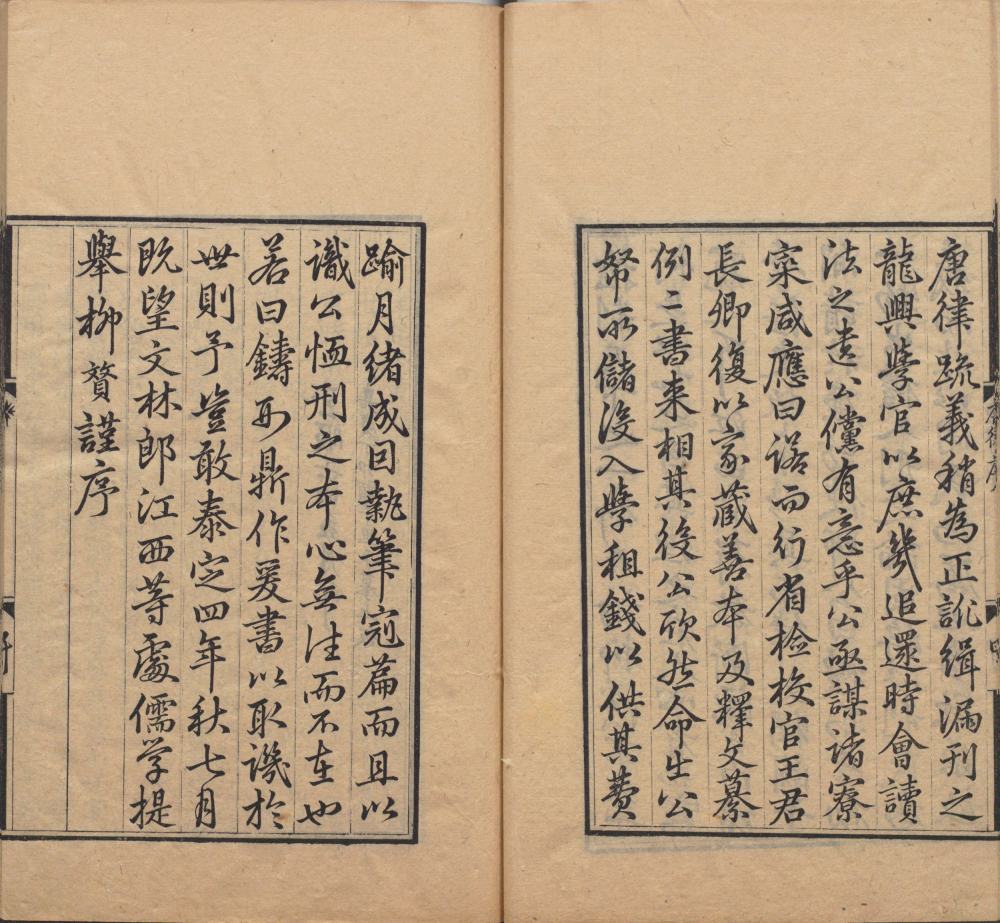 唐律疏義稍為正訛緝漏刊之
龍興學官以庶幾追還時會讀
法之遺公儻有意乎公亟謀諸寮
寀咸應曰諾而行省檢校官王君
長卿復以家藏善本及釋文纂
例二書來相其後公欣然命出公
帑所儲沒入學租錢以供其費
踰月緒成因執筆冠篇而且以
識公恤刑之本心無往而不在也
若曰鑄刑鼎作爰書以取譏於
世則予豈敢泰定四年秋七月
既望文林郎江西等處儒學提
舉柳贇謹序